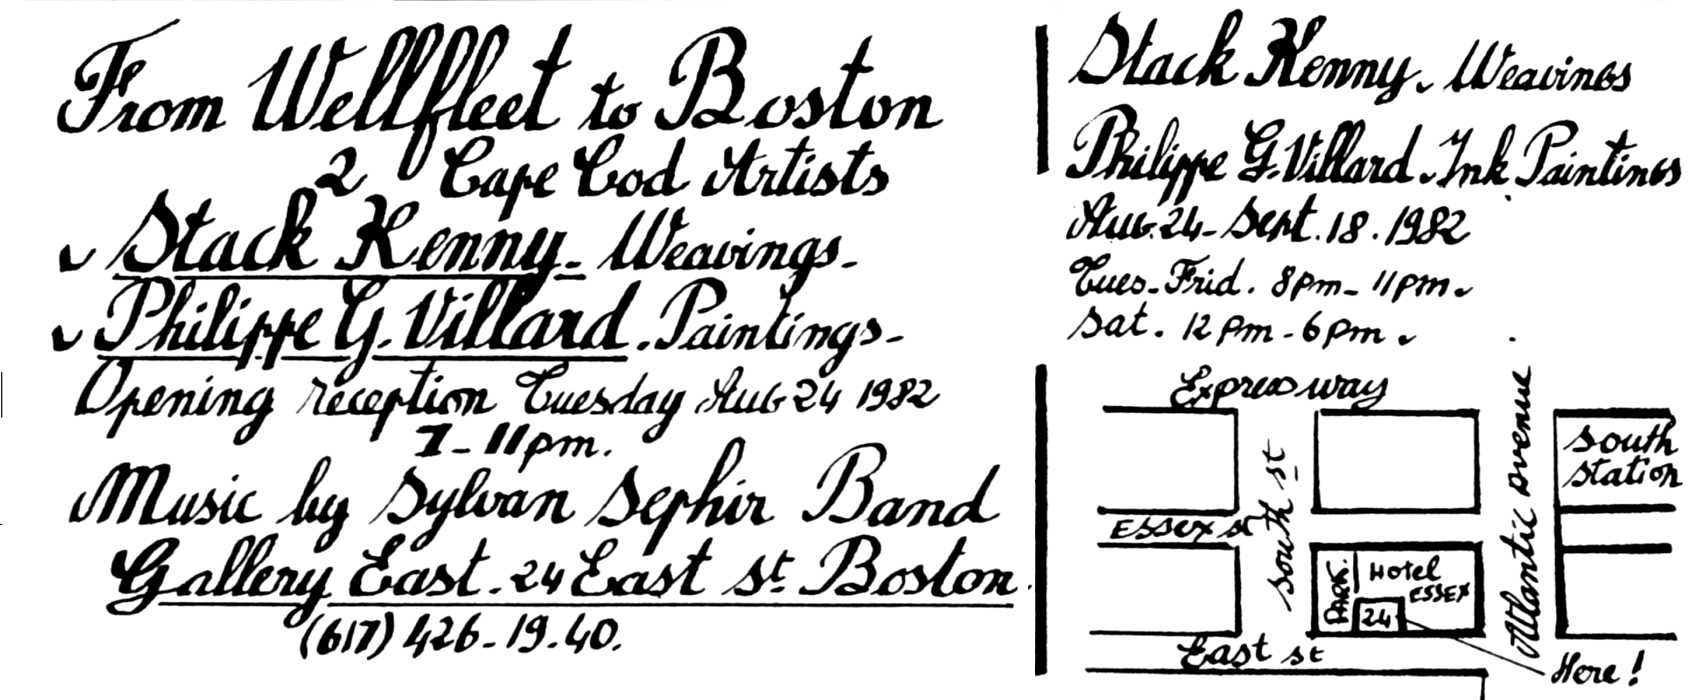 From Wellfleet to Boston
2 Cape Cod Artists
Stack Kenny - Weavings -
Philippe G. Villard . Paintings -
Opening reception Tuesday Aug 24 1982
7 - 11pm.
Music by Sylvan Sephir Band
Gallery East . 24 East st Boston.
(617) 426 - 19 . 40.
Stack Kenny. Weavings
Philippe G. Villard. Ink Paintings
Aug. 24 - Sept. 18 . 1982
Tues - Frid . 8pm - 11pm.
Sat . 12 pm - 6 pm .
Expressway
South st
Atlantic Avenue
South
Station
ESSEX st
PARK.
Hotel
ESSEX
24
East st
Here !